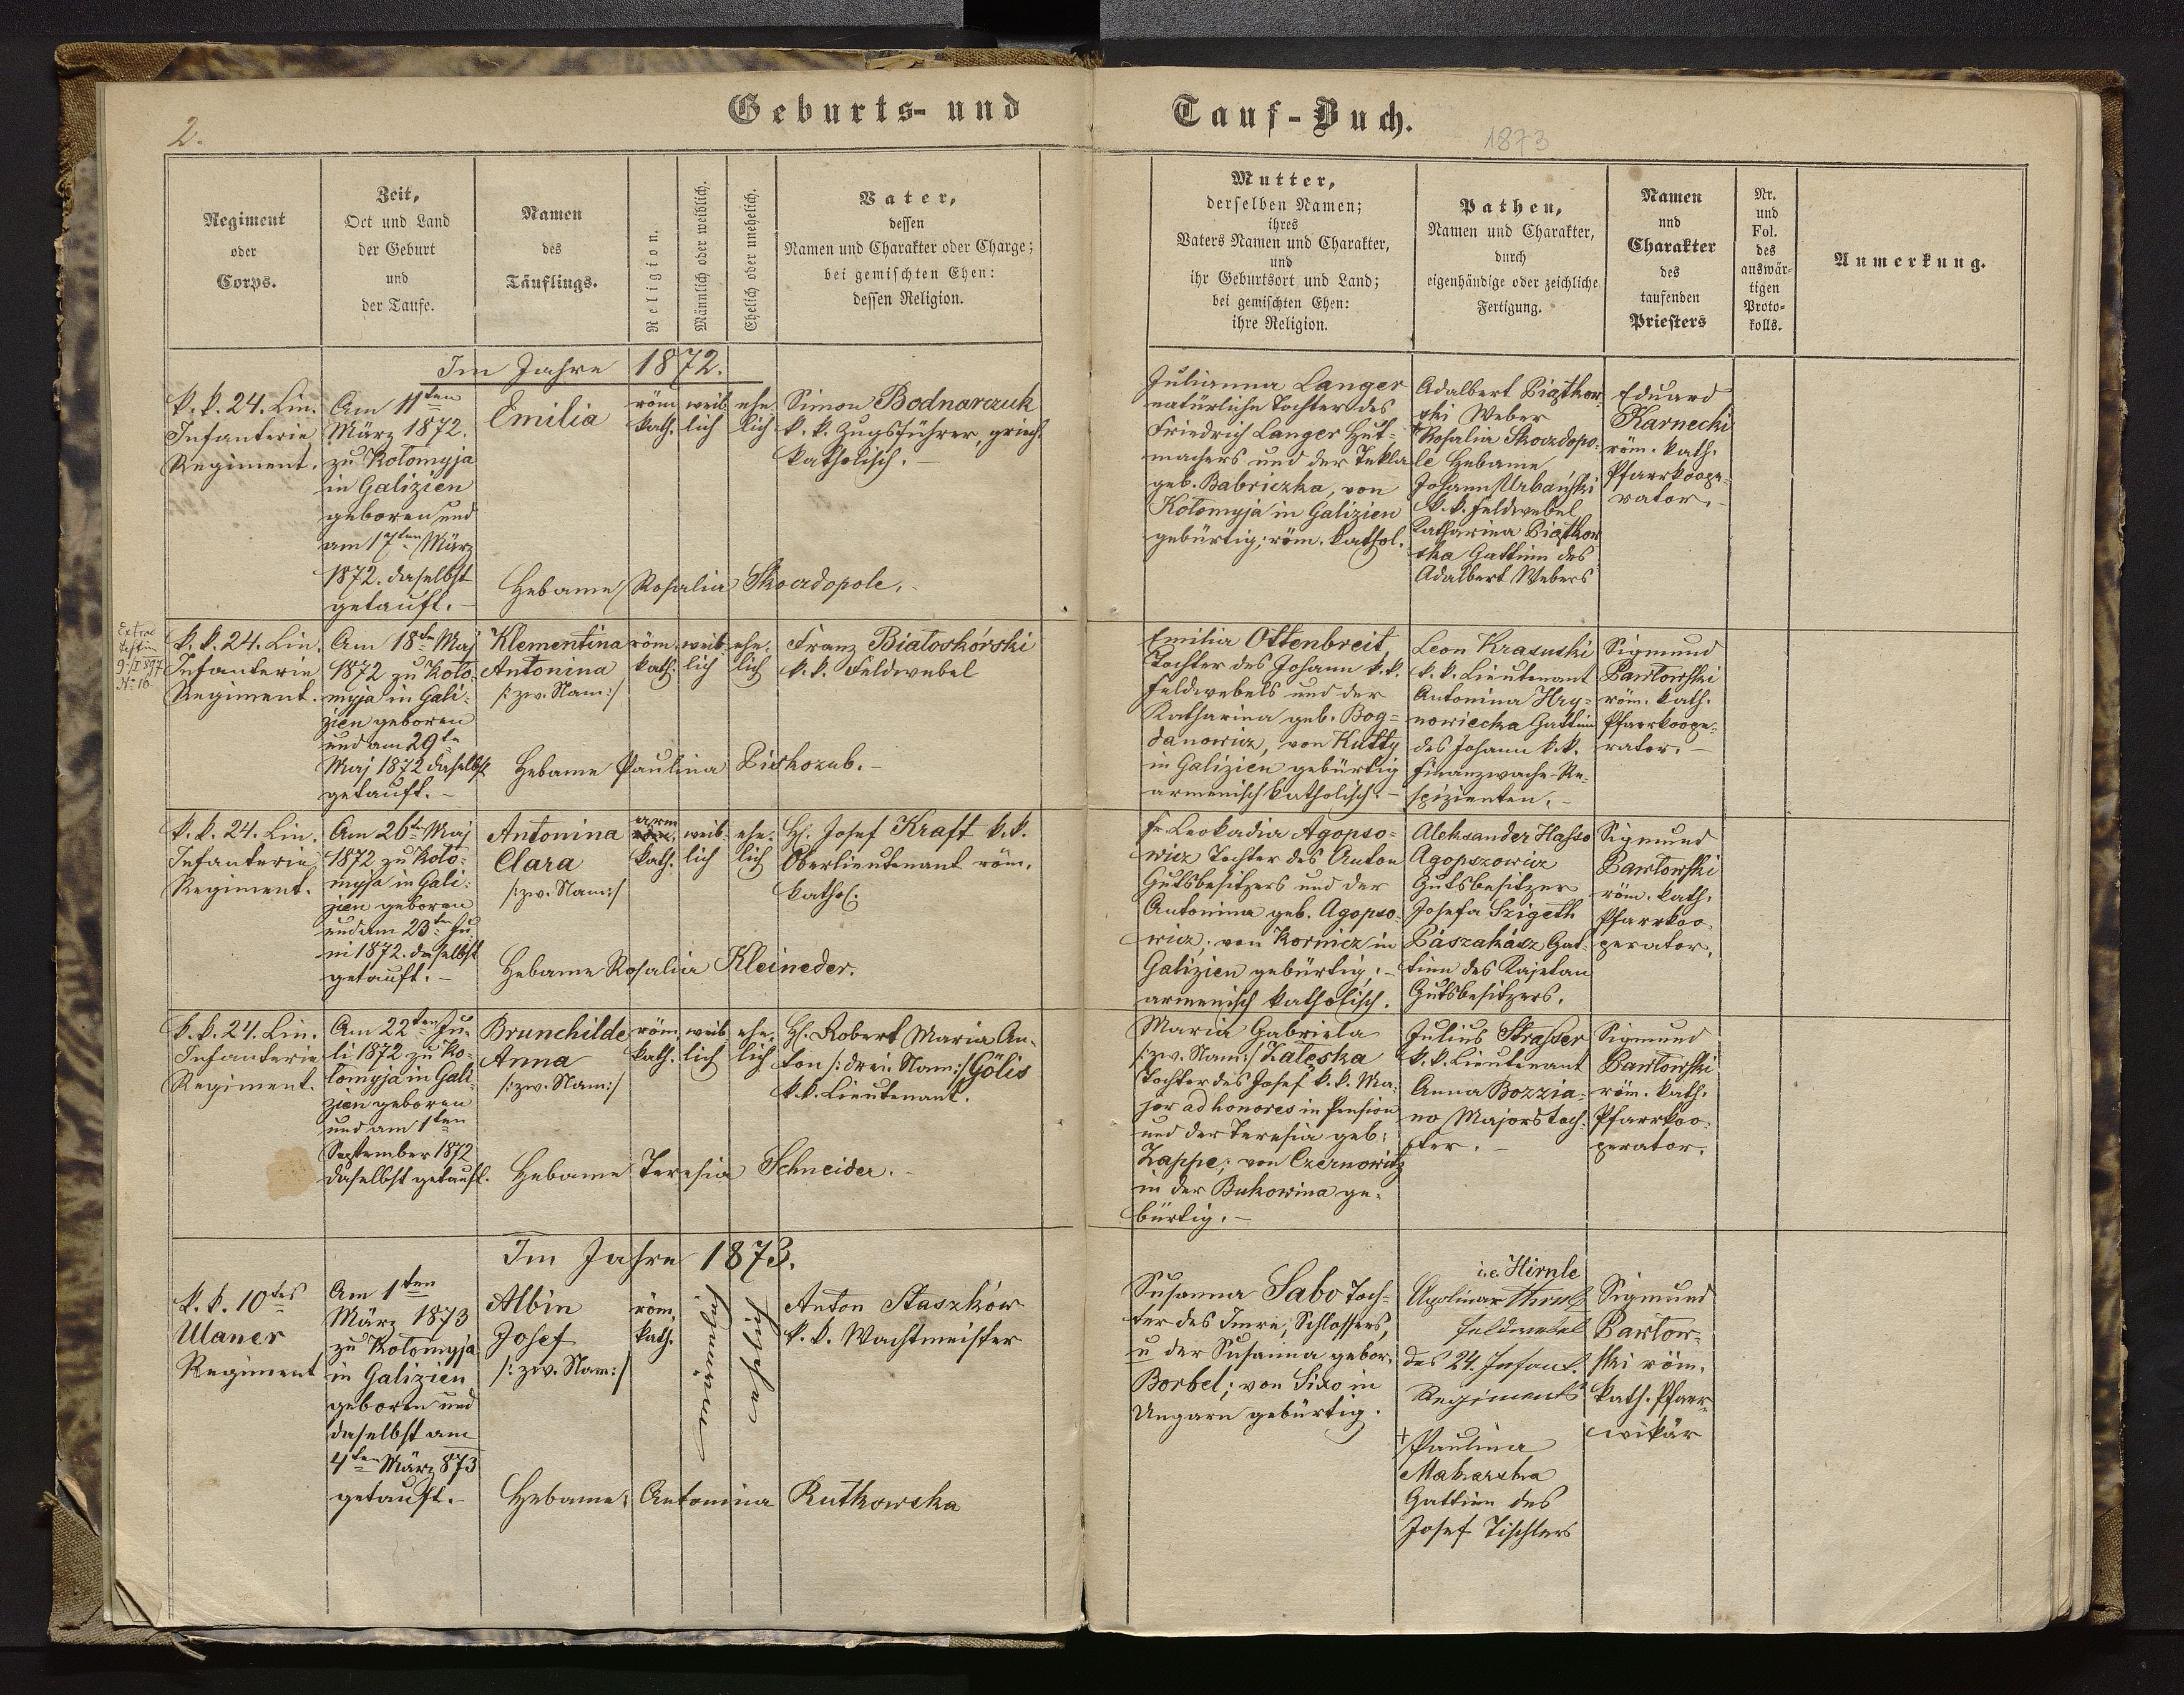 Geburts- und Tauf-Buch.
2.
1873
Regiment
oder
Corps.
Zeit,
Ort und Land
der Geburt
und
der Taufe.
Namen
des
Täuflings.
Religion.
Männlich oder weiblich.
Ehelich oder unehelich.
Vater,
dessen
Namen und Charakter oder Charge;
bei gemischten Ehen:
dessen Religion.
Mutter,
derselben Namen;
ihres
Vaters Namen und Charakter,
und
ihr Geburtsort und Land;
bei gemischten Ehen:
ihre Religion.
Pathen,
Namen und Charakter,
durch
eigenhändige oder zeichliche
Fertigung.
Namen
und
Charakter
des
taufenden
Priesters
Nr.
und
Fol.
des
auswär-
tigen
Proto-
kolls.
Anmerkung.
Im Jahre 1872.
k. k. 24. Lin.
Infanterie
Regiment.
Am 11ten
März 1872.
zu Kołomyja
in Galizien
geboren und
am 17ten März
1872. daselbst
getauft.
Emilia
röm.
kath.
weib
lich
ehe
lich
Simon Bodnarczuk
k. k. Zugsführer, griech.
katholisch.
Hebame Rosalia Skoczdopole.
Julianna Langer
natürliche Tochter des
Friedrich Langer Hut-
machers und der Tekla
geb. Babriczka, von
Kołomyja in Galizien
gebürtig; röm. kathol.
Adalbert Piątkow-
ski Weber
+Rosalia Skoczdopo-
le Hebame
Johann Urbański
k. k. Feldwebel
Katharina Piątkow
ska Gattinn des
Adalbert Webers
Eduard
Karnecki
röm. kath.
Pfarrkoope-
rator.
9/I 897
No 16
k. k. 24. Lin.
Infanterie
Regiment.
Am 18ten Maj
1872 zu Koło-
myja in Gali-
zien geboren
und am 29te
Maj 1872 daselbst
getauft.
Klementina
Antonina
/: zw. Nam:/
röm.
kath.
weib-
lich
ehe-
lich
Franz Białoskórski
k. k. Feldwebel
Hebame Paulina Piskozub.
Emilia Ottenbreit,
Tochter des Johann k. k.
Feldwebels und der
Katharina geb. Bog-
danowicz, von Kutty
in Galizien gebürtig
armenisch katholisch.
Leon Krasuski
k. k. Lieutenant
Antonina Hry-
nowiecka Gattinn
des Johann k. k.
Finanzwache-Re-
spizienten.
Sigmund
Pawłowski
röm. kath.
Pfarrkoope-
rator.
k. k. 24. Lin.
Infanterie
Regiment.
Am 26te Maj
1872 zu Koło-
myja in Gali-
zien geboren
und am 23te Ju-
ni 1872. daselbst
getauft.
Antonina
Clara
/: zw. Nam:/
arm
röm.
kath.
weib
lich
ehe-
lich
H. Josef Kraft k. k.
Oberlieutenant röm.
kathol:
Hebame Rosalia Kleineder.
Fr. Leokadia Agopso-
wicz Tochter des Anton
Gutsbesitzers und der
Antonina geb. Agopso-
wicz; von Kornicz in
Galizien gebürtig;
armenisch katholisch.
Aleksander Hasso
Agopszowicz
Gutsbesitzer
Josefa Szigeth
Gat-
tinn des Kajetan
Gutsbesitzers.
Sigmund
Pawłowski
röm. kath.
Pfarrkoo-
perator.
k. k. 24. Lin.
Infanterie
Regiment.
Am 22ten Ju-
li 1872 zu Ko-
łomyja in Gali-
zien geboren
und am 1ten
September 1872
daselbst getauft.
Brunchilde
Anna
/: zw. Nam:/
röm.
kath.
weib
lich
ehe-
lich
H. Robert Maria An-
ton /: drei: Nam:/ Gölis
k. k. Lieutenant.
Hebame Teresia Schneider.
Maria Gabriela
/: zw. Nam:/ Załęska
Tochter des Josef k. k. Ma-
jor ad honores in Pension
und der Teresia geb:
Zappe; von Czernowitz
in der Bukowina ge-
bürtig.
Julius Strasser
k. k. Lieutenant
Anna Bozzia-
no Majorstoch-
ter.
Sigmund
Pawłowski
röm. kath.
Pfarrkoo-
perator.
Im Jahre 1873.
k. k. 10tes
Ulaner
Regiment
Am 1ten
März 1873
zu Kołomyja
in Galizien
geboren und
daselbst am
4ten März 873
getauft.
Albin
Josef
/: zw. Nam:/
röm.
kath.
Anton Staszków
k. k. Wachtmeister
Hebame: Antonina Rutkowska
Susanna Sabo Toch-
ter des Imre, Schlossers,
u der Susanna gebor.
Borbel; von Sixo in
Ungarn gebürtig.
i.e. Hirnle
Apolinar Hirnle
Feldwebel
des 24. Infant.
Regiments
+Paulina
Makarska
Gattinn des
Josef Tischlers
Sigmund
Pawłow-
ski röm.
kath. Pfarr-
vikär